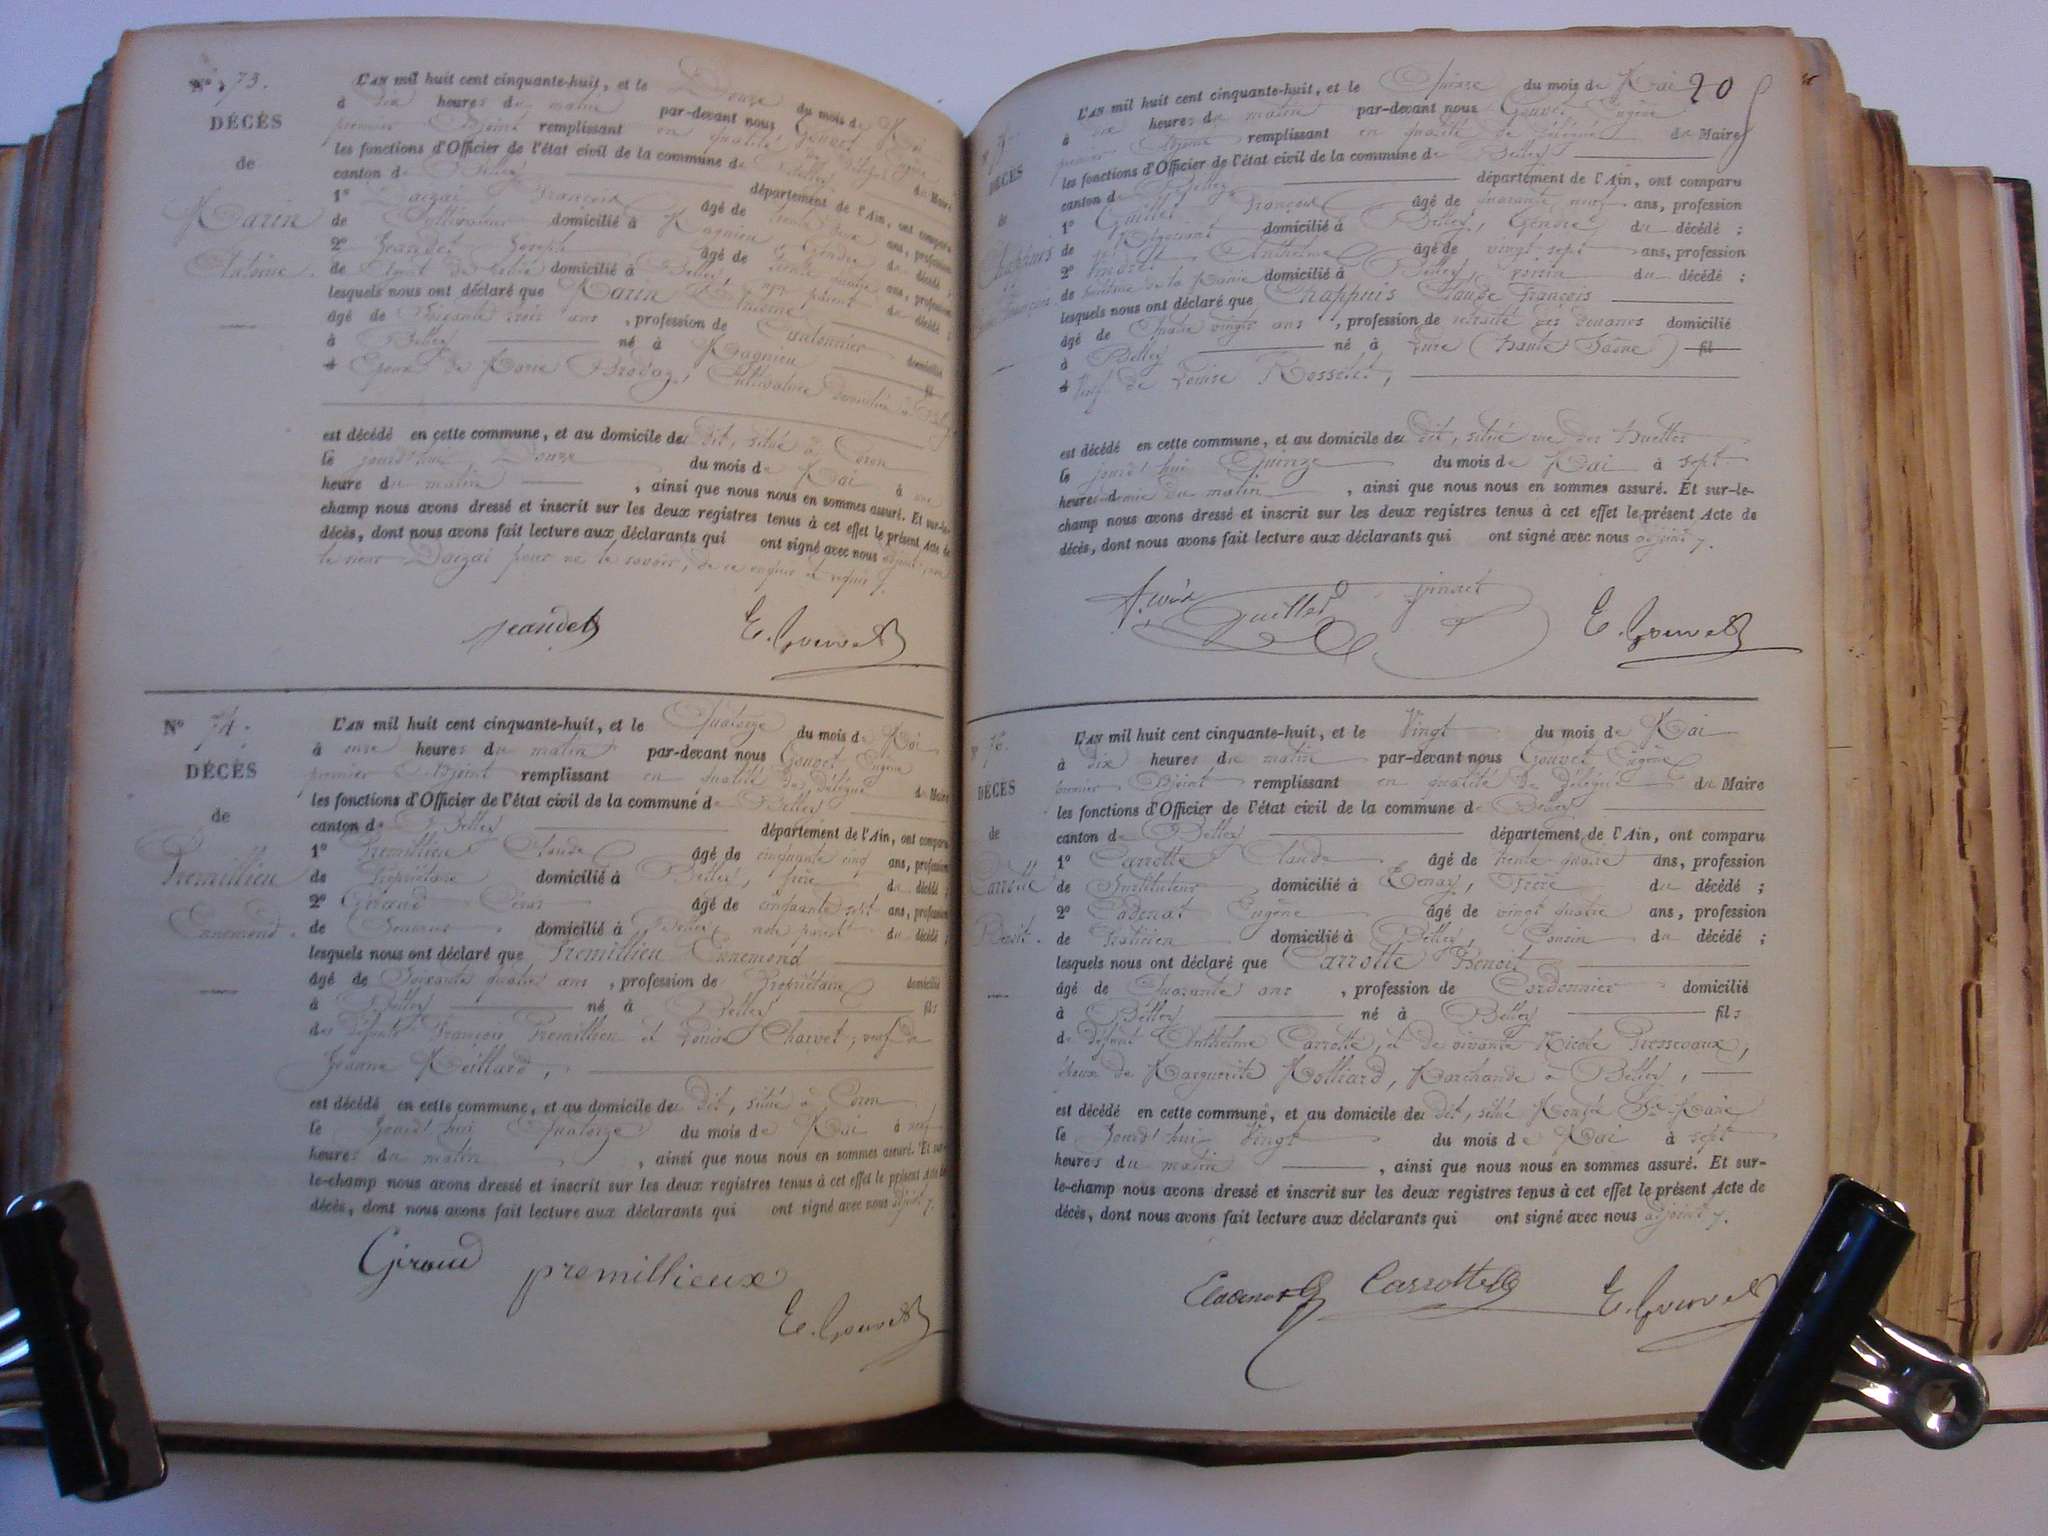 N° 73.
DÉCÈS
de
Marin
Antoine.
L'AN mil huit cent cinquante-huit, et le Douze du mois de Mai
à dix heures du matin par-devant nous Gouvet Eugène
premier Adjoint remplissant en qualité de délégué du Maire
les fonctions d'Officier de l'état civil de la commune de Belley
canton de Belley département de l'Ain, ont comparu
1° François âgé de trente ans, profession
de Cultivateur domicilié à Magnieu, Gendre du décédé ;
2° Jeandet Joseph âgé de trente ans, profession
de domicilié à Belley, non parent du décédé ;
lesquels nous ont déclaré que Marin Antoine
âgé de Soixante trois ans, profession de Cantonnier domicilié
à Belley né à Magnieu fil
d Epoux de Marie Brodaz, Cultivatrice domiciliée à Belley
est décédé en cette commune, et au domicile du dit, situé à Coron
le jourd'hui Douze du mois de Mai à une
heure du matin, ainsi que nous nous en sommes assuré. Et sur-le-
champ nous avons dressé et inscrit sur les deux registres tenus à cet effet le présent Acte de
décès, dont nous avons fait lecture aux déclarants qui ont signé avec nous adjoint, non
le sieur Darzai pour ne le savoir, de ce enquis et requis /.
Jeandet E. Gouvet
N° 74.
DÉCÈS
de
Premillieu
Ennemond.
L'AN mil huit cent cinquante-huit, et le Quatorze du mois de Mai
à onze heures du matin par-devant nous Gouvet Eugène
premier Adjoint remplissant en qualité de délégué du Maire
les fonctions d'Officier de l'état civil de la commune de Belley
canton de Belley département de l'Ain, ont comparu
1° Premillieu Claude âgé de cinquante cinq ans, profession
de Propriétaire domicilié à Belley, frère du décédé ;
2° Giraud César âgé de cinquante sept ans, profession
de domicilié à Belley, non parent du décédé ;
lesquels nous ont déclaré que Premillieu Ennemond
âgé de Soixante quatre ans, profession de Propriétaire domicilié
à Belley né à Belley fils
des défunts François Premillieu et Louise Charvet, veuf de
Jeanne Meillard,
est décédé en cette commune, et au domicile du dit, situé à Coron
le Jourd'hui Quatorze du mois de Mai à neuf
heures du matin, ainsi que nous nous en sommes assuré. Et sur-
le-champ nous avons dressé et inscrit sur les deux registres tenus à cet effet le présent Acte de
décès, dont nous avons fait lecture aux déclarants qui ont signé avec nous adjoint /.
Giraud premillieux
E. Gouvet
20
DÉCÈS
de
Chappuis
L'AN mil huit cent cinquante-huit, et le Quinze du mois de Mai
à dix heures du matin par-devant nous Gouvet Eugène
premier Adjoint remplissant en qualité de délégué du Maire
les fonctions d'Officier de l'état civil de la commune de Belley
canton de Belley département de l'Ain, ont comparu
1° Guillet François âgé de quarante neuf ans, profession
de Négociant domicilié à Belley, Gendre du décédé ;
2° Anthelme âgé de vingt sept ans, profession
de de la Mairie domicilié à Belley, voisin du décédé ;
lesquels nous ont déclaré que Chappuis Claude François
âgé de Quatre vingts ans, profession de retraité des douanes domicilié
à Belley né à Lure (haute Saône) fil
d Veuf de Louise Rosselet,
est décédé en cette commune, et au domicile du dit, situé rue des huettes
le jourd'hui Quinze du mois de Mai à sept
heures demie du matin, ainsi que nous nous en sommes assuré. Et sur-le-
champ nous avons dressé et inscrit sur les deux registres tenus à cet effet le présent Acte de
décès, dont nous avons fait lecture aux déclarants qui ont signé avec nous adjoint /.
Guillet E. Gouvet
76.
DÉCÈS
de
Carrotte
Benoit.
L'AN mil huit cent cinquante-huit, et le Vingt du mois de Mai
à dix heures du matin par-devant nous Gouvet Eugène
premier Adjoint remplissant en qualité de délégué du Maire
les fonctions d'Officier de l'état civil de la commune de Belley
canton de Belley département de l'Ain, ont comparu
1° Carrotte Claude âgé de trente quatre ans, profession
de Instituteur domicilié à Tenay, Frère du décédé ;
2° Cadenat Eugène âgé de vingt quatre ans, profession
de Praticien domicilié à Belley, Cousin du décédé ;
lesquels nous ont déclaré que Carrotte Benoit
âgé de Quarante ans, profession de Cordonnier domicilié
à Belley né à Belley fils
de défunt Anthelme Carrotte, et de vivante Nicole Pressevaux,
époux de Marguerite Molliard, Marchande à Belley,
est décédé en cette commune, et au domicile du dit, situé Montée Ste Marie
le Jourd'hui Vingt du mois de Mai à sept
heures du matin, ainsi que nous nous en sommes assuré. Et sur-
le-champ nous avons dressé et inscrit sur les deux registres tenus à cet effet le présent Acte de
décès, dont nous avons fait lecture aux déclarants qui ont signé avec nous adjoint /.
Carrotte E. Gouvet